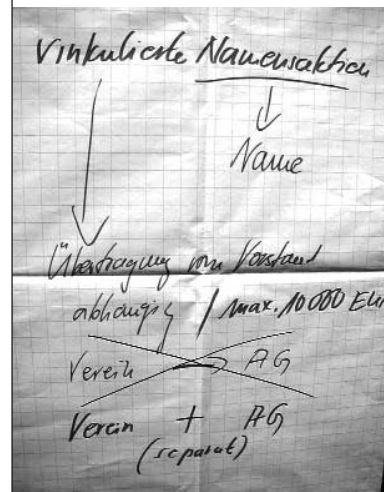 Vinkulierte Namensaktien
Name
Übertragung vom Vorstand
abhängig / max. 10 000 EUR
Verein AG
Verein + AG
(separat)